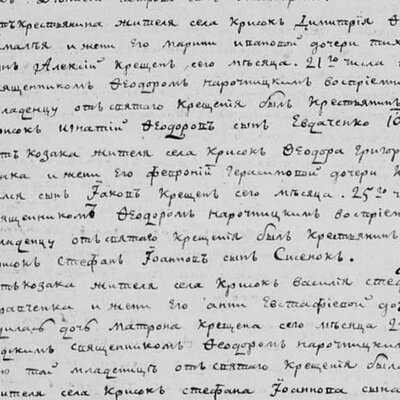 отъ Крестьянина жителя села Крисокъ Димитрія
и жени Его Марини ивановой дочери
Алексій Крещенъ сего мѣсяца 21го числа
священникомъ Ѳеодоромъ нарочницкимъ воспріемни
младенцу отъ святаго Крещенія былъ Крестьянинъ
рисокъ Игнатій Ѳеодоровъ сынъ Евдаченко
отъ козака жителя села Крисокъ Ѳеодора Григор
нка и жени его Февроніи Герасимовой дочери
лся сынъ Іаковъ Крещенъ сего мѣсяца 25го
священникомъ Ѳеодоромъ нарочницкимъ воспріем
младенцу отъ святаго Крещенія былъ Крестьянинъ
рисокъ Стефанъ Іоанновъ сынъ Сисенокъ.
отъ козака жителя села Крисокъ василія стеф
равченка и жени Его анни Евстафіевой до
дилась дочь матрона Крещена сего мѣсяца 2
дскимъ священникомъ Ѳеодоромъ нарочницким
той младеницѣ отъ святаго Крещенія
жителя села Крисокъ стефана Іоаннова сына